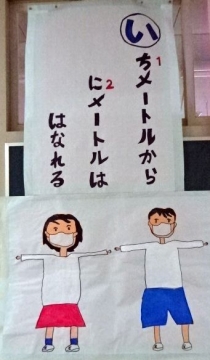 いちメートルから1
にメートルは2
はなれる